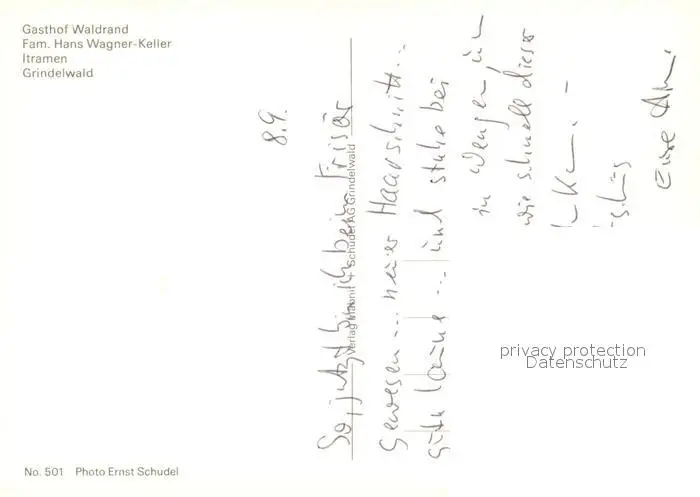 Gasthof Waldrand
Fam. Hans Wagner-Keller
Itramen
Grindelwald
8.9.
So, jetzt bin ich beim Frisör
gewesen... neuer Haarschnitt...
gute Laune... und stehe bei
in Wengen
wie schnell dieser
Eure
Verlag Schudel AG Grindelwald
privacy protection
Datenschutz
No. 501 Photo Ernst Schudel